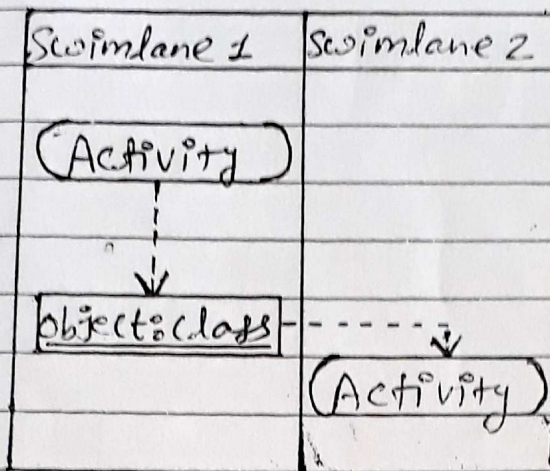 Swimlane 1
Swimlane 2
Activity
object:class
Activity